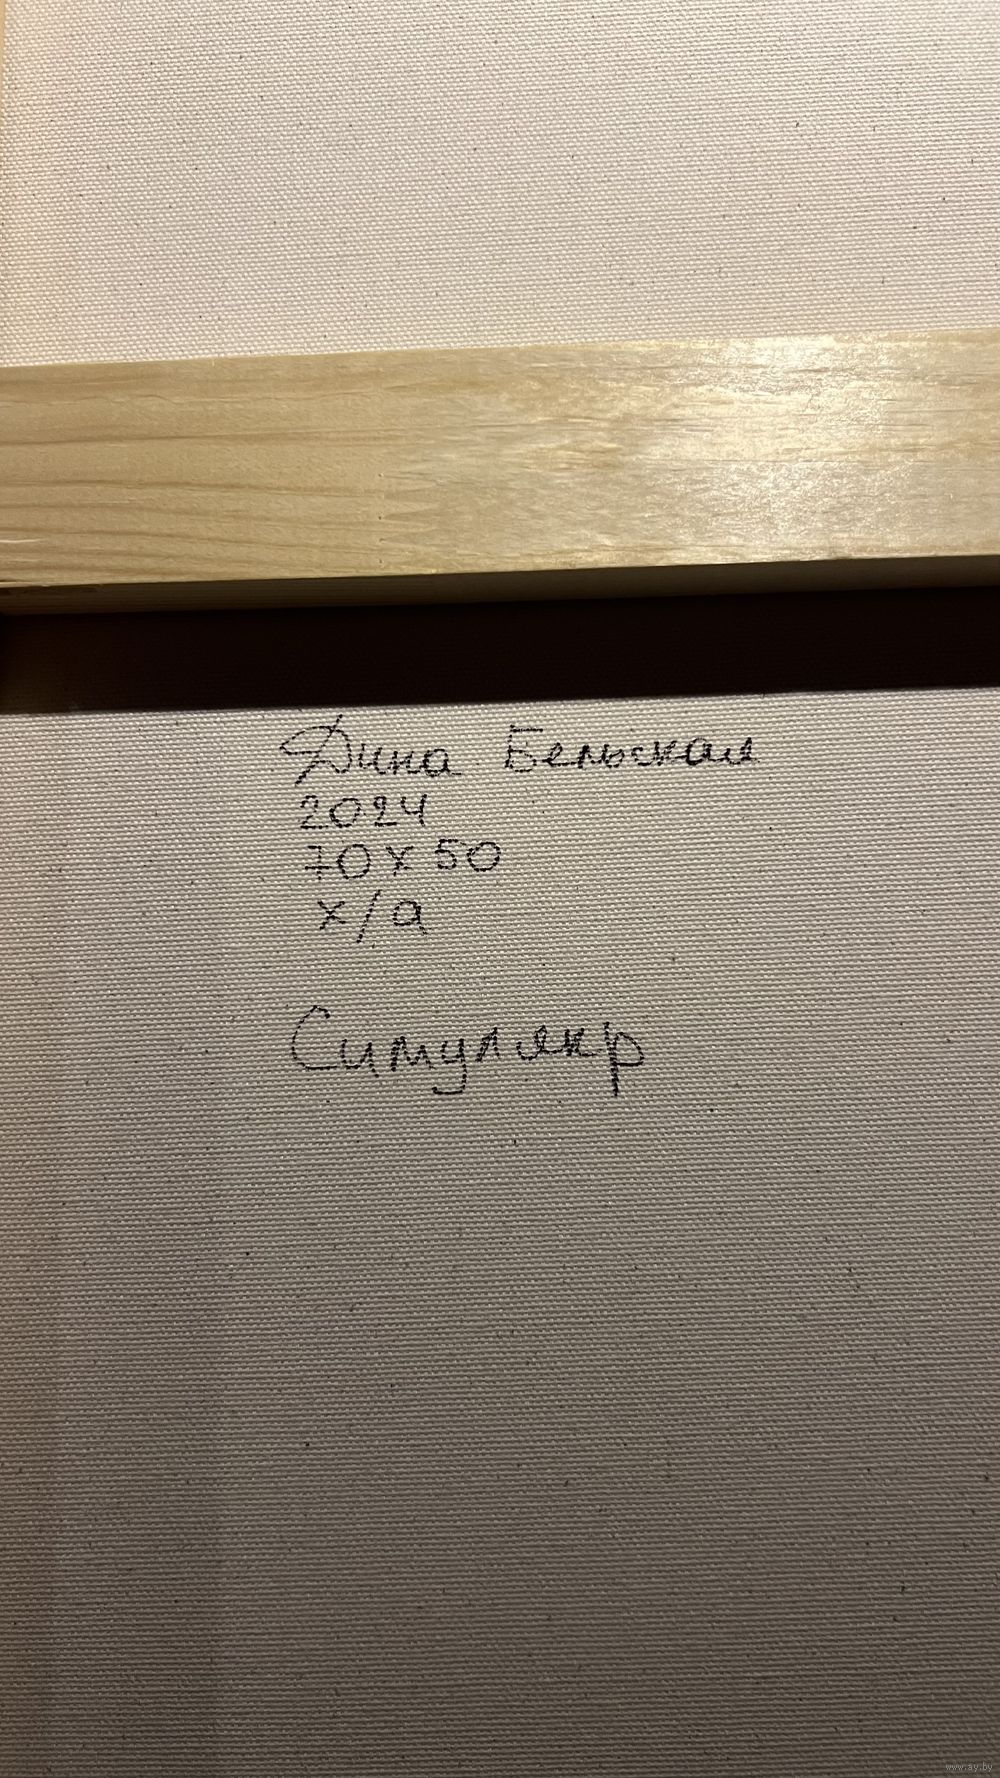 Дина Бельская
2024
70х50
х/а
Симулякр
www.ay.by